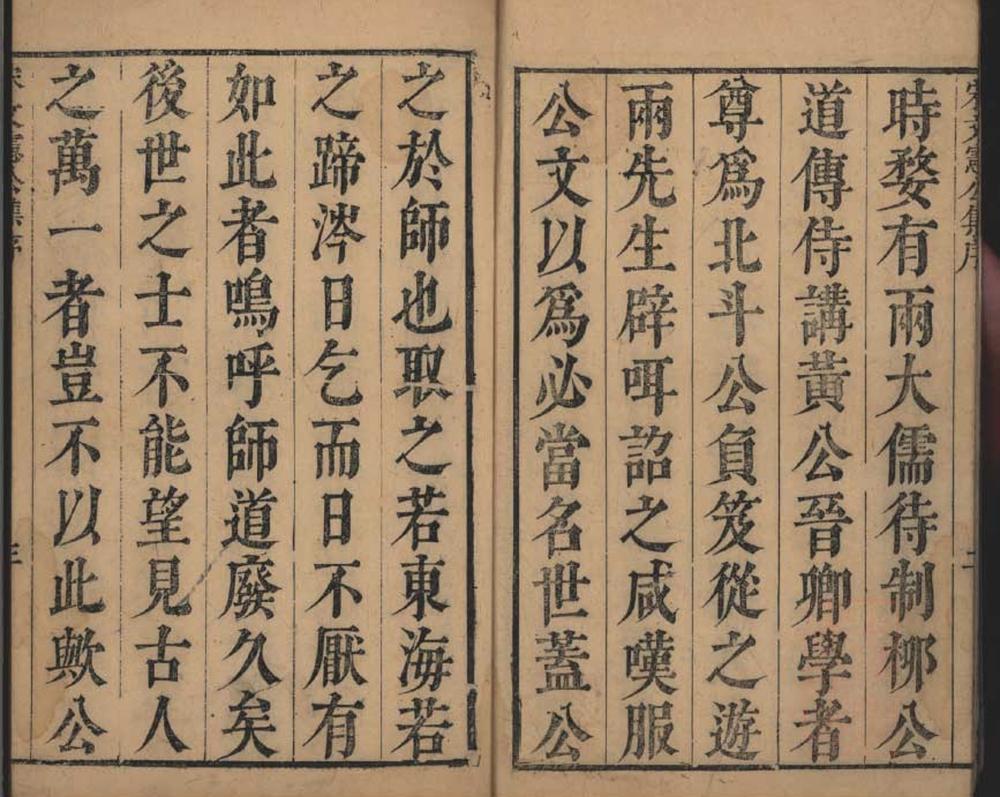 時婺有兩大儒待制栁公
道傳侍講黃公晉卿學者
尊爲北斗公負笈從之遊
兩先生辟咡詔之咸嘆服
公文以爲必當名世蓋公
之於師也取之若東海若
之蹄涔日乞而日不厭有
如此者嗚呼師道廢久矣
後世之士不能望見古人
之萬一者豈不以此歟公